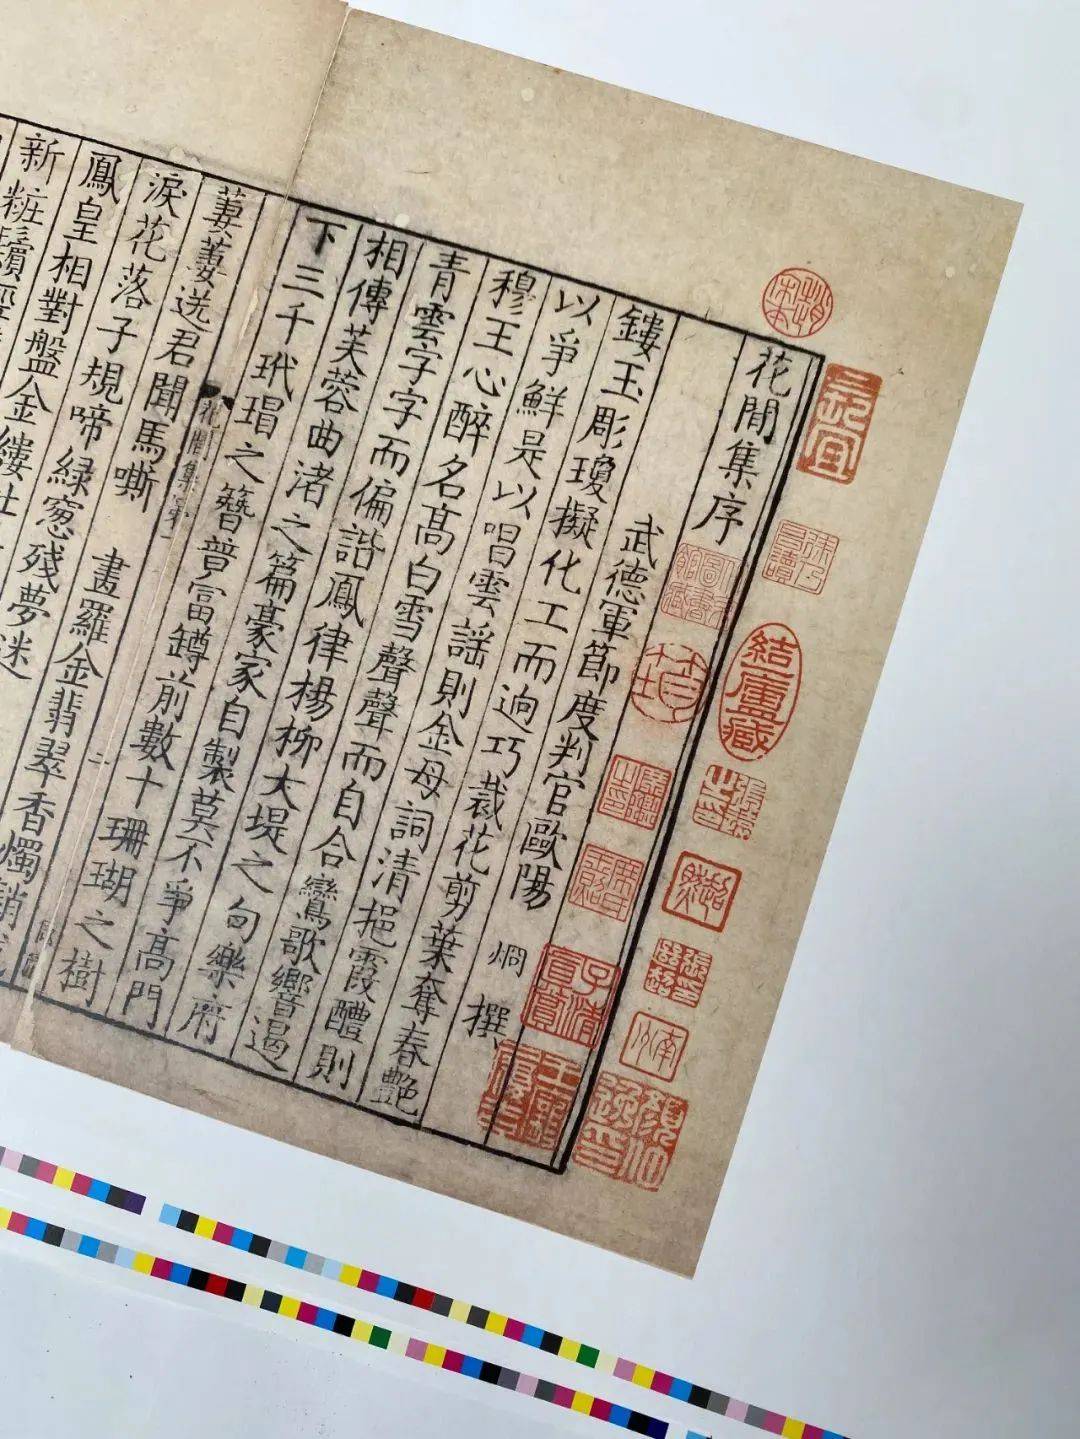 花間集序
武德軍節度判官歐陽 烱 撰
鏤玉彫瓊擬化工而逈巧裁花剪葉奪春艷
以爭鮮是以唱雲謡則金母詞清挹霞醴則
穆王心醉名髙白雪聲聲而自合鸞歌響遏
青雲字字而偏諧鳳律楊柳大堤之句樂府
相傳芙蓉曲渚之篇豪家自製莫不爭髙門
下三千玳瑁之簪普富罇前數十珊瑚之樹
花間集卷一
二
萋萋送君聞馬嘶 畫羅金翡翠香燭銷成
淚花落子規啼緑窻殘夢迷
鳳皇相對盤金縷牡
新粧鬢輕
結一廬藏